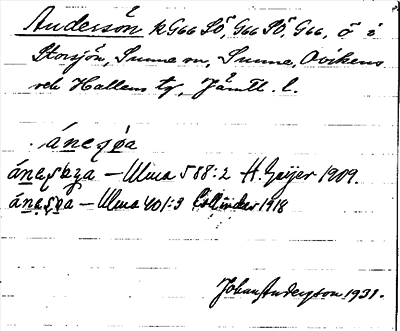 Andersön k G66 SÖ, G66 SÖ, G66, ö i
Storsjön, Sunne sn, Sunne, Ovikens
och Hallens tg, Jämtl. l.
– Ulma 588:2 H. Geijer 1909.
– Ulma 401:3 Collinder 1918
Johan Anderson 1931.